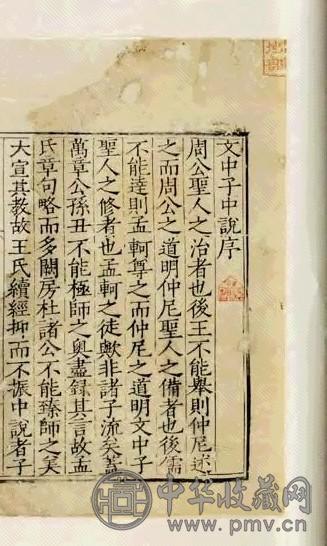 文中子中說序
周公聖人之治者也後王不能舉則仲尼述
之而周公之道明仲尼聖人之備者也後儒
不能逹則孟軻尊之而仲尼之道明文中子
聖人之修者也孟軻之徒歟非諸子流矣蓋
萬章公孫丑不能極師之奧盡録其言故孟
氏章句略而多闕房杜諸公不能臻師之美
大宣其教故王氏續經抑而不振中說者子
中华收藏网
www.pmv.cn